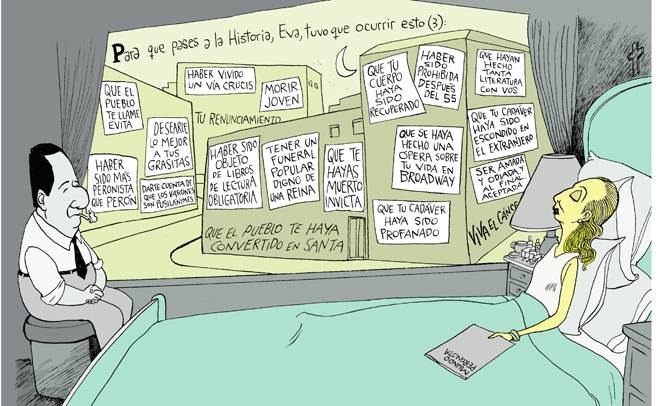 Para que pases a la Historia, Eva, tuvo que ocurrir esto (3):
QUE EL
PUEBLO
TE LLAME
EVITA
HABER VIVIDO
UN VÍA CRUCIS
MORIR
JOVEN
TU RENUNCIAMIENTO
DESEARLE
LO MEJOR
A TUS
GRASITAS
HABER
SIDO MÁS
PERONISTA
QUE PERÓN
DARTE CUENTA DE
QUE LOS VARONES
SON PUSILÁNIMES
HABER SIDO
OBJETO
DE LIBROS
DE LECTURA
OBLIGATORIA
TENER UN
FUNERAL
POPULAR
DIGNO DE
UNA REINA
QUE TE
HAYAS
MUERTO
INVICTA
QUE EL PUEBLO TE HAYA
CONVERTIDO EN SANTA
QUE TU
CUERPO
HAYA
SIDO
RECUPERADO
HABER
SIDO
PROHIBIDA
DESPUÉS
DEL 55
QUE HAYAN
HECHO
TANTA
LITERATURA
CON VOS
QUE SE HAYA
HECHO UNA
ÓPERA SOBRE
TU VIDA EN
BROADWAY
QUE TU CADÁVER
HAYA SIDO
ESCONDIDO EN
EL EXTRANJERO
SER AMADA
Y ODIADA Y
AL FINAL
ACEPTADA
QUE TU CADÁVER
HAYA SIDO
PROFANADO
VIVA EL CÁNCE
MUNDO
PERONISTA